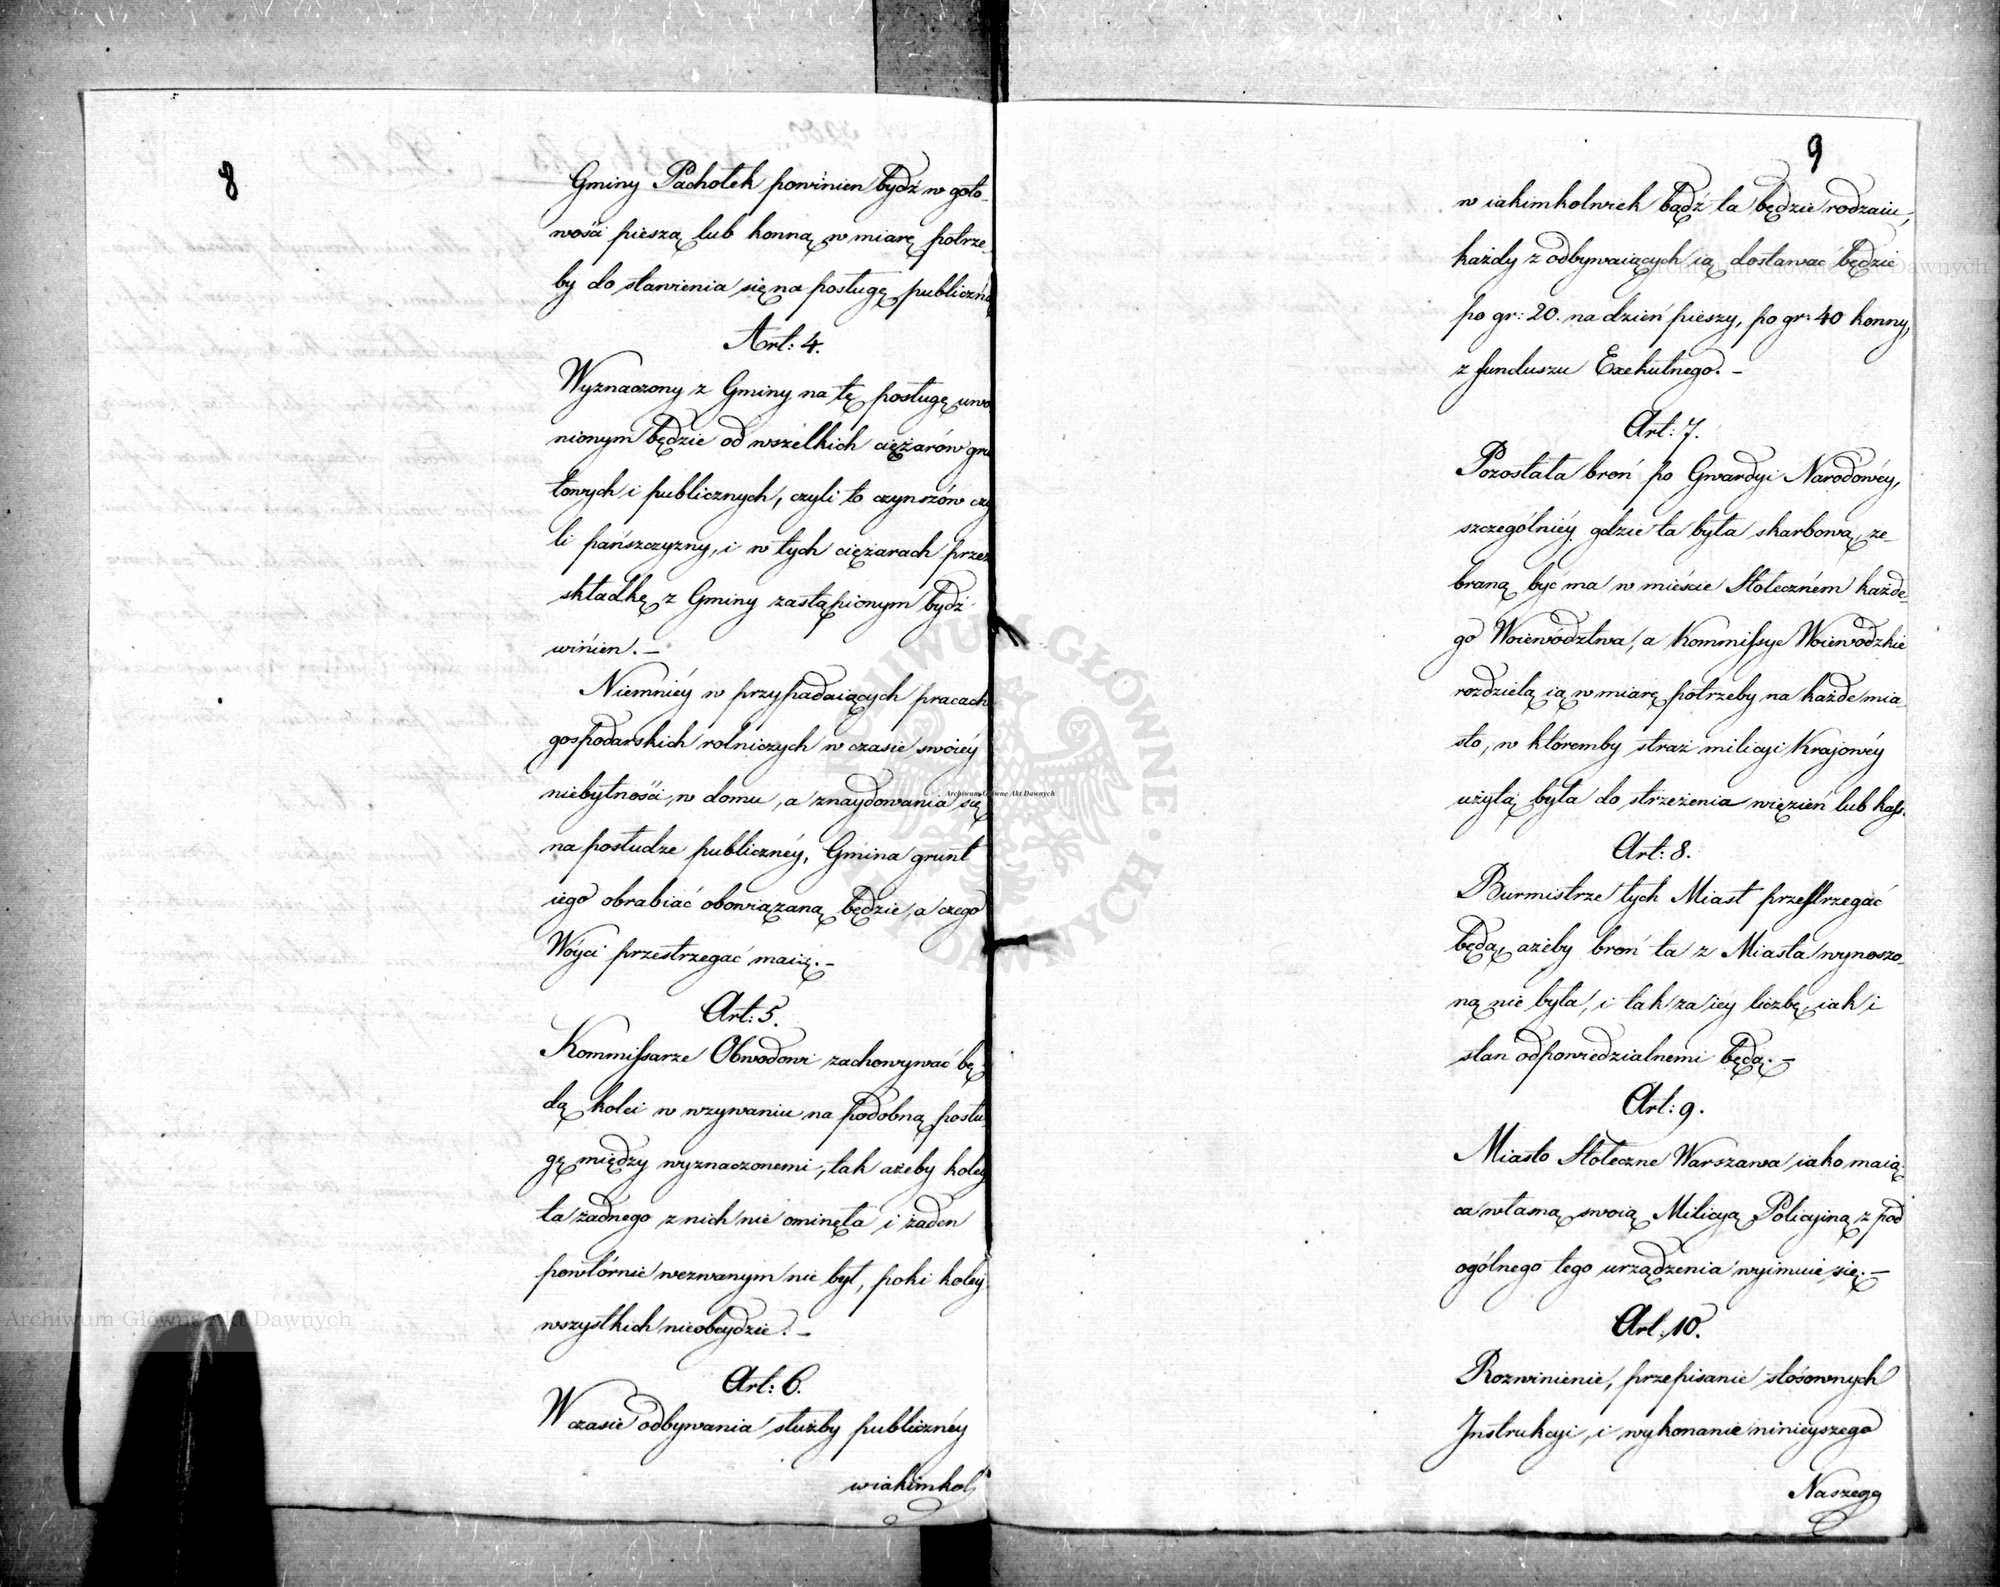 8
Gminy Pachołek powinien bydź w goto-
wości pieszą lub konną w miarę potrze-
by do stawienia się na posługę publiczną
Art: 4.
Wyznaczony z Gminy na tę posługę uwo
nionym będzie od wszelkich ciężarów gru
towych i publicznych, czyli to czynszów czy
li pańszczyzny, i w tych ciężarach przez
składkę z Gminy zastąpionym bydź
winien. –
Niemniéy w przypadaiących pracach
gospodarskich rolniczych w czasie swoiéy
niebytności w domu, a znaydowania się
na posłudze publicznéy, Gmina grunt
iego obrabiać obowiązaną będzie, a czego
Wóyci przestrzegać maią. –
Art: 5.
Kommissarze Obwodowi zachowywać bę-
dą kolei w wzywaniu na podobną posłu
gę między wyznaczonemi, tak ażeby koley
ta żadnego z nich nie ominęła i żaden
powtórnie wezwanym nie był, poki koley
wszystkich nieobeydzie. –
Art: 6.
W czasie odbywania służby publicznéy
wiakimkol
9
w iakimkolwiek bądź ta będzie rodzaiu,
każdy z odbywaiących ią dostawać będzie
po gr: 20. na dzień pieszy, po gr: 40 konny,
z funduszu Exekutnego. –
Art: 7.
Pozostała broń po Gwardyi Narodowéy,
szczególniéy gdzie ta była skarbową, ze-
braną być ma w mieście Stołeczném każde-
go Woiewództwa, a Kommissye Woiewodzkie
rozdzielą ią w miarę potrzeby na każde mia-
sto, w któremby straż milicyi Krajowéy
użytą była do strzeżenia więzień lub kass.
Art: 8.
Burmistrze tych Miast przestrzegać
będą, ażeby broń ta z Miasta wynoszo-
ną nie była, i tak za iéy liczbę, iak i
stan odpowiedzialnemi będą. –
Art: 9.
Miasto Stołeczne Warszawa iako maią-
ca własną swoią Milicyą Policyiną z pod
ogólnego tego urządzenia wyimuie się. –
Art. 10.
Rozwinienie, przepisanie stosownych
Instrukcyi, i wykonanie ninieyszego
Naszego
Archiwum Główne Akt Dawnych
Archiwum Główne Akt Dawnych
Archiwum Główne Akt Dawnych
ARCHIWUM GŁÓWNE AKT DAWNYCH